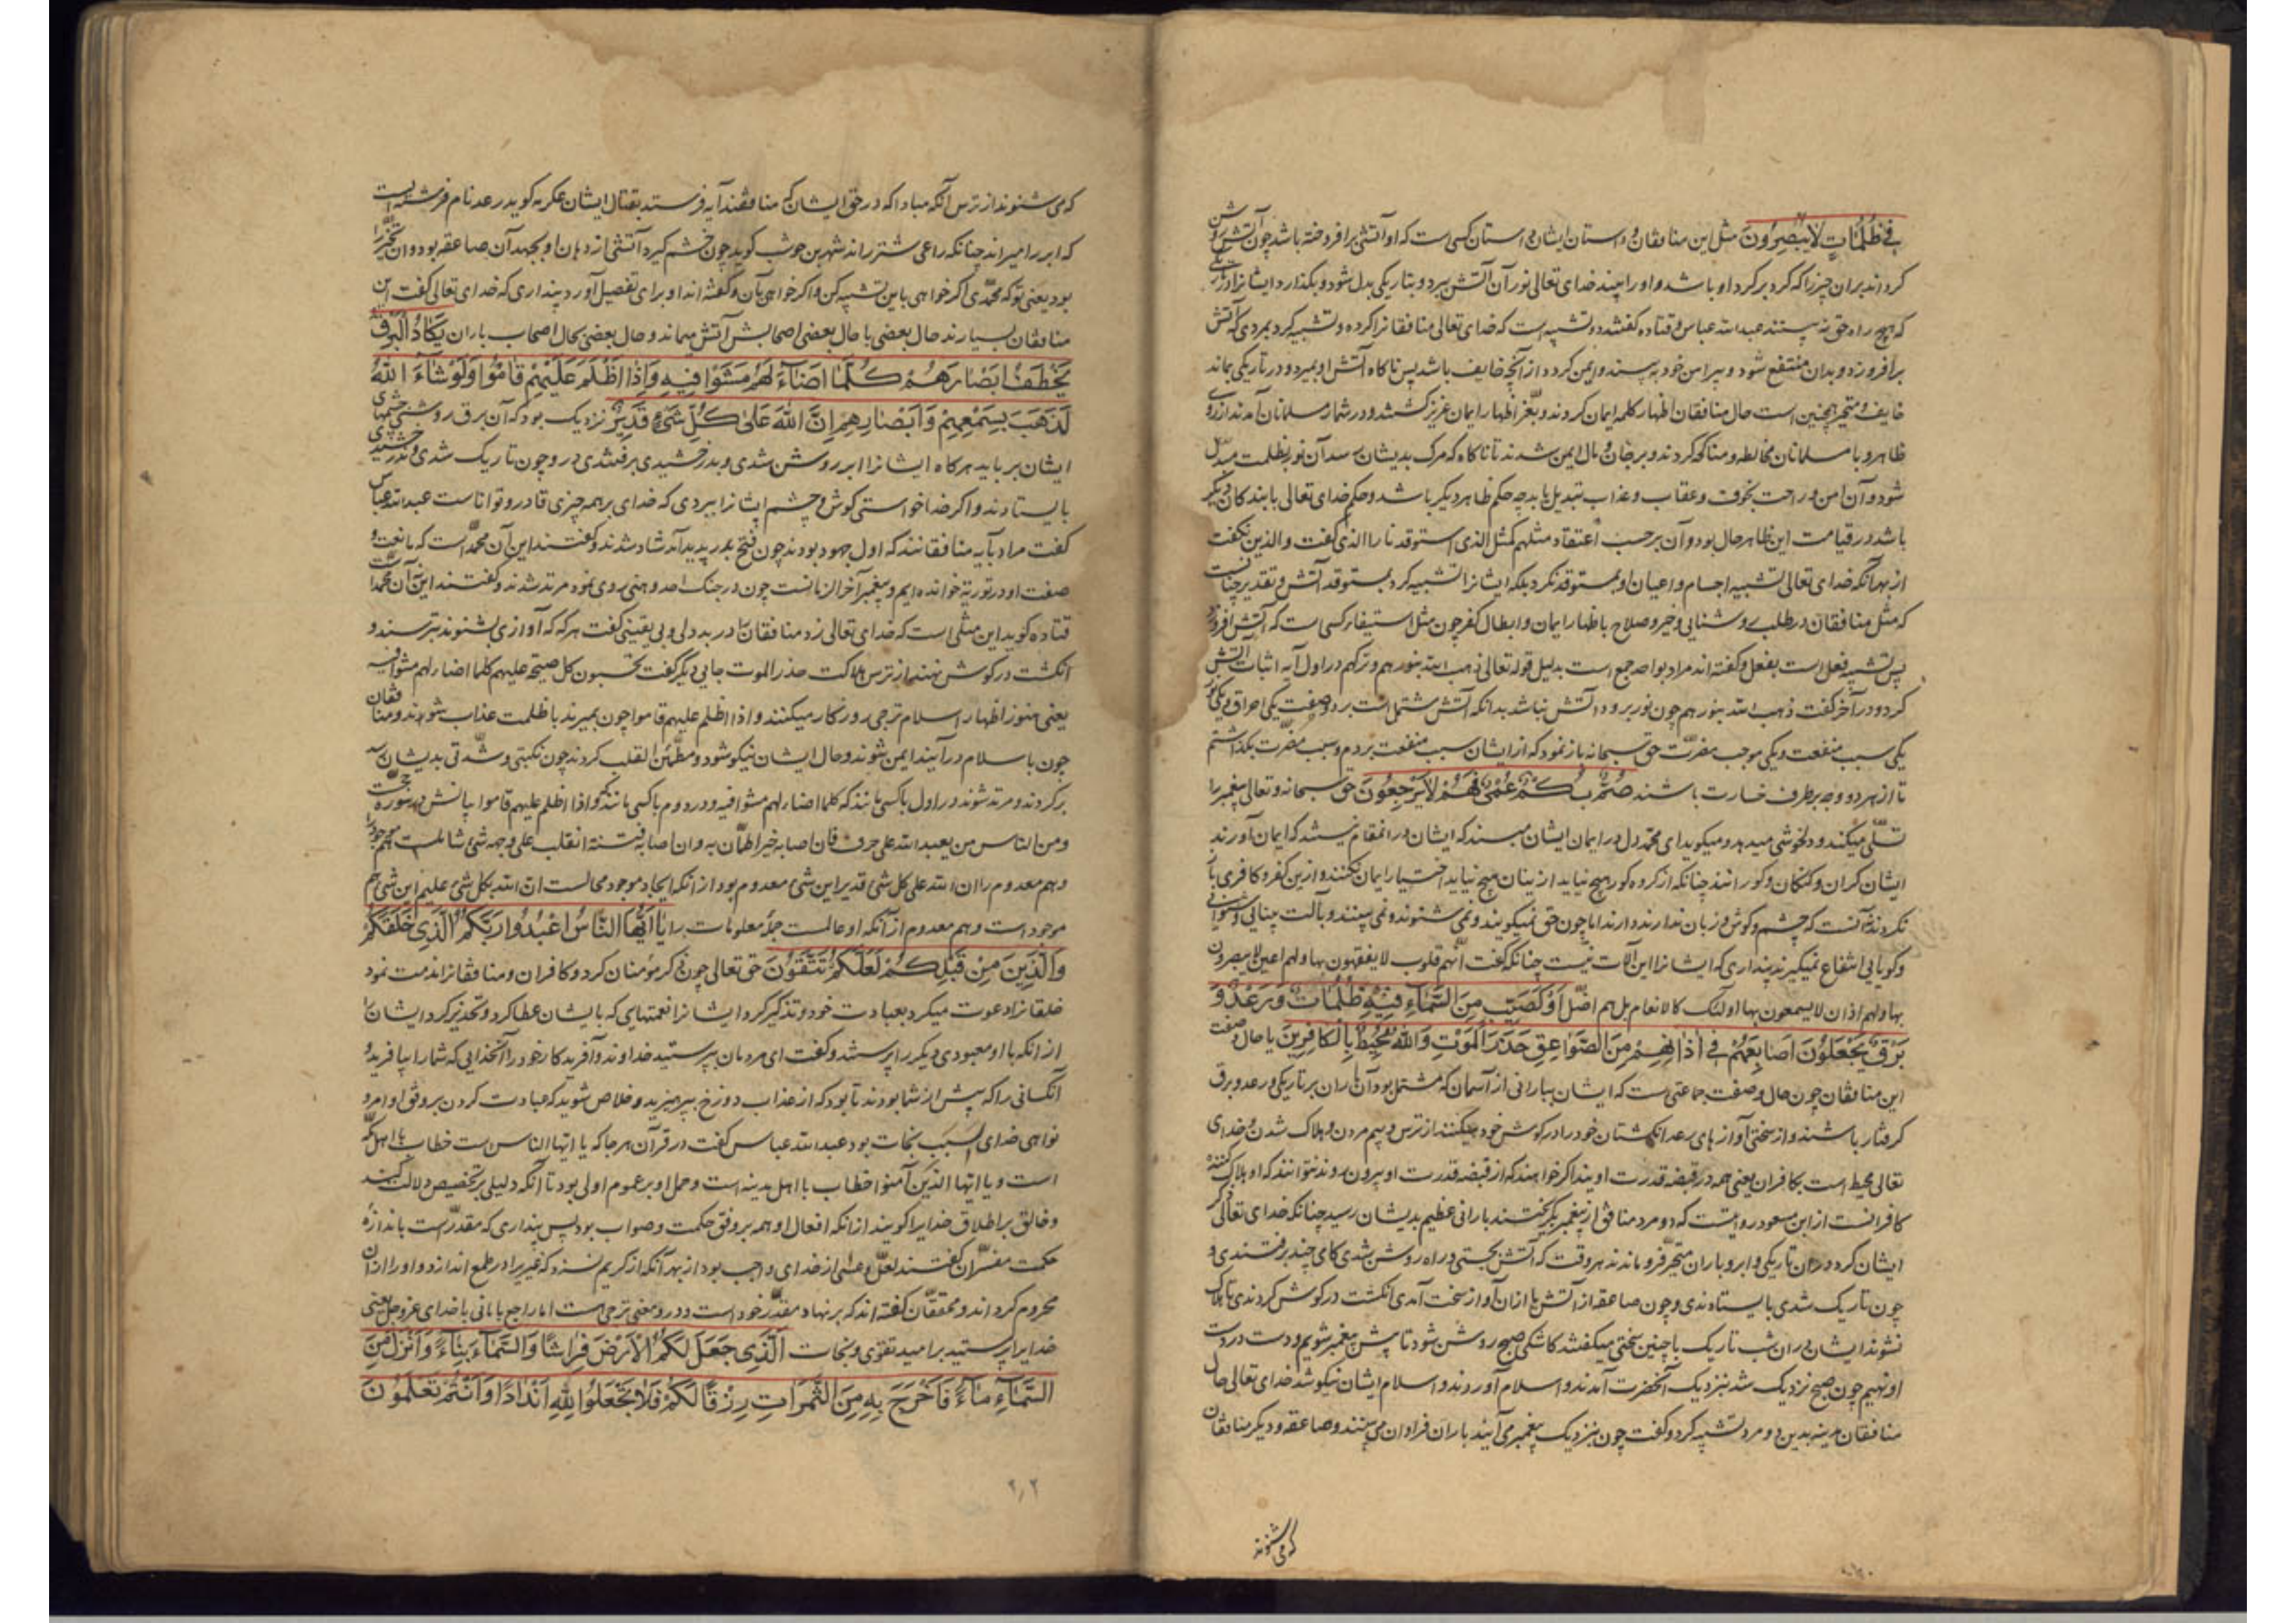 فِي ظُلُمَاتٍ لَا يُبْصِرُونَ مثل این منافقان و داستان ایشان داستان کسی است که او آتشی برافروخته باشد چون آتش روشن
کرداند بران چیز را که کرد بر کرد او باشد و او را بیند خدای تعالی نور آن آتش ببرد و بتاریکی بدل شود و بکذارد ایشانرا در تاریکی
که هیچ راه حق نه بینند عبدالله عباس و قتاده کفتند و تشبیه است که خدای تعالی منافقانرا کرده و تشبیه کرد بمردی که آتش
برافروزد و بدان منتفع شود و پیرامن خود به بیند و ایمن کردد از آنچه خایف باشد پس ناکاه آتش او بمیرد و در تاریکی بماند
خایف و متحیر همچنین است حال منافقان اظهار کلمه ایمان کردند و بعز اظهار ایمان عزیز کشتند و در شمار مسلمانان آمدند از روی
ظاهر و با مسلمانان مخالطه و مناکحه کردند و بر جان و مال ایمن شدند تا ناکاه که مرک بدیشان رسد آن نور بظلمت مبدل
شود و آن امن و راحت بخوف و عقاب و عذاب تبدیل یابد چه حکم ظاهر دیکر باشد و حکم خدای تعالی با بندکان دیکر
باشد در قیامت این ظاهر حال بود و آن برحسب اعتقاد مثلهم کمثل الذی استوقد نارا الذی کفت و الذین نکفت
از بهر آنکه خدای تعالی تشبیه اجسام و اعیان او بمستوقد نکرد بلکه ایشانرا تشبیه کرد بمستوقد آتش و تقدیر چنانست
که مثل منافقان در طلب روشنایی و خیر و صلاح باظهار ایمان و ابطال کفر چون مثل کسی است که آتش افروزد
پس تشبیه فعل است بفعل و کفته اند مراد بواحد جمع است بدلیل قوله تعالی ذهب الله بنورهم و ترکهم در اول آیه اثبات آتش
کرد و در آخر کفت ذهب الله بنورهم چون نور برود آتش نباشد بدانکه آتش مشتمل است بر دو صفت یکی احراق و یکی نور
یکی سبب منفعت و یکی موجب مضرت حق سبحانه باز نمود که از ایشان سبب منفعت بردم و سبب مضرت بکذاشتم
تا از هر دو وجه بر طرف خسارت باشند صُمٌّ بُكْمٌ عُمْيٌ فَهُمْ لَا يَرْجِعُونَ حق سبحانه و تعالی پیغمبر را
تسلی میکند و دلخوشی میدهد و میکوید ای محمد دل در ایمان ایشان مبند که ایشان در آن مقام نیستند که ایمان آورند
ایشان کران و کنکان و کورانند چنانکه از کروه کور هیچ نیاید از ینان هیچ نیاید اختیار ایمان نکنند و ازین کفر و کافری باز
نکردند آنست که چشم و کوش و زبان ندارند دارند اما چون حق نمیکویند و نمی شنوند و نمی بینند و بآلت بینایی و شنوایی
و کویایی انتفاع نمیکیرند پنداری که ایشانرا این آلات نیست چنانکه کفت لهم قلوب لا یفقهون بها و لهم اعین لا یبصرون
بها و لهم اذان لا یسمعون بها اولئک کالانعام بل هم اضل أَوْ كَصَيِّبٍ مِنَ السَّمَاءِ فِيهِ ظُلُمَاتٌ وَرَعْدٌ وَ
بَرْقٌ يَجْعَلُونَ أَصَابِعَهُمْ فِي آذَانِهِمْ مِنَ الصَّوَاعِقِ حَذَرَ الْمَوْتِ وَاللَّهُ مُحِيطٌ بِالْكَافِرِينَ یا حال و صفت
این منافقان چون حال و صفت جماعتی است که ایشان ببارانی از آسمان که مشتمل بود آن باران بر تاریکی و رعد و برق
کرفتار باشند و از سختی آوازهای رعد انکشتان خود را در کوش خود میکنند از ترس و بیم مردن و هلاک شدن و خدای
تعالی محیط است بکافران یعنی همه در قبضه قدرت اویند اکر خواهند که از قبضه قدرت او بیرون روند نتوانند که او هلاک کننده
کافرانست از ابن مسعود روایتست که دو مرد منافق از پیغمبر بکریختند بارانی عظیم بدیشان رسید چنانکه خدای تعالی ذکر
ایشان کرد در آن تاریکی و ابر و باران متحیر فرو ماندند هر وقت که آتش بجستی و راه روشن شدی کامی چند برفتندی و
چون تاریک شدی بایستادندی و چون صاعقه از آتش با ازان آواز سخت آمدی انکشت در کوش کردندی تا هلاک
نشوند ایشان در آن شب تاریک با چنین سختی میکفتند کاشکی صبح روشن شود تا پیش پیغمبر شویم و دست در دست
او نهیم چون صبح نزدیک شد بنزدیک آنحضرت آمدند و اسلام آوردند و اسلام ایشان نیکو شد خدای تعالی حال
منافقان مدینه بدین دو مرد تشبیه کرد و کفت چون بنزدیک پیغمبر می آیند باران فراوان می بینند و صاعقه و دیکر منافقان
که می شنوند
که می شنوند از ترس آنکه مبادا که در حق ایشان که منافقند آیه فرستد بقتال ایشان عکرمه کوید رعد نام فرشته ایست
که ابر را میراند چنانکه راعی شتر راند شهر بن حوشب کوید چون خشم کیرد آتشی از دهان او بجهد آن صاعقه بود و ان تخیر را
بود یعنی تو که محمدی اکر خواهی باین تشبیه کن و اکر خواهی بآن و کفته اند او برای تفصیل آورد پنداری که خدای تعالی کفت این
منافقان بسیارند حال بعضی با حال بعضی اصحابش آتش میماند و حال بعضی بحال اصحاب باران يَكَادُ الْبَرْقُ
يَخْطَفُ أَبْصَارَهُمْ كُلَّمَا أَضَاءَ لَهُمْ مَشَوْا فِيهِ وَإِذَا أَظْلَمَ عَلَيْهِمْ قَامُوا وَلَوْ شَاءَ اللَّهُ
لَذَهَبَ بِسَمْعِهِمْ وَأَبْصَارِهِمْ إِنَّ اللَّهَ عَلَى كُلِّ شَيْءٍ قَدِيرٌ نزدیک بود که آن برق روشنی چشمهای
ایشان برباید هر کاه ایشانرا ابر روشن شدی و بدرخشیدی برفتندی در و چون تاریک شدی و ندرخشیدی
بایستادند و اکر خدا خواستی کوش و چشم ایشانرا ببردی که خدای بر همه چیزی قادر و تواناست عبدالله عباس
کفت مراد بآیه منافقانند که اول جهود بودند چون فتح بدر پدید آمد شاد شدند و کفتند این آن محمد است که ما نعت و
صفت او در توریة خوانده ایم و پیغمبر آخر الزمانست چون در جنک احد وهنی روی نمود مرتد شدند و کفتند این نه آن محمد است
قتاده کوید این مثلی است که خدای تعالی زد منافقانرا در بددلی و بی یقینی کفت هر که که آوازی بشنوند بترسند و
انکشت در کوش نهند از ترس هلاکت حذر الموت جایی دیکر کفت یحسبون کل صیحة علیهم کلما اضاء لهم مشوا فیه
یعنی هنوز اظهار اسلام ترجی روزکار میکنند و اذا اظلم علیهم قاموا چون بمیرند با ظلمت عذاب شوند و منافقان
چون با سلام درآیند ایمن شوند و حال ایشان نیکو شود و مطمئن القلب کردند چون نکبتی و شدتی بدیشان رسد
برکردند و مرتد شوند در اول باکسی مانند که کلما اضاء لهم مشوا فیه و در دوم باکسی مانند که و اذا اظلم علیهم قاموا بیانش در سوره حج است
و من الناس من یعبد الله علی حرف فان اصابه خیر اطمأن به و ان اصابته فتنة انقلب علی وجهه شیء شاملست هم موجود را
و هم معدوم را ان الله علی کل شیء قدیر این شیء معدوم بود از آنکه ایجاد موجود محالست ان الله بکل شیء علیم این شیء هم
موجود است و هم معدوم از آنکه او عالمست جملۀ معلومات را يَا أَيُّهَا النَّاسُ اعْبُدُوا رَبَّكُمُ الَّذِي خَلَقَكُمْ
وَالَّذِينَ مِنْ قَبْلِكُمْ لَعَلَّكُمْ تَتَّقُونَ حق تعالی چون ذکر مؤمنان کرد و کافران و منافقانرا مذمت نمود
خلقانرا دعوت میکرد بعبادت خود و تذکیر کرد ایشانرا نعمتهایی که بایشان عطا کرد و تحذیر کرد ایشانرا
از آنکه با او معبودی دیکر را پرستند و کفت ای مردمان بپرستید خداوند و آفریدکار خود را آنخدایی که شما را بیافرید و
آنکسانی را که پیش از شما بودند تا بود که از عذاب دوزخ بپرهیزید و خلاص شوید که عبادت کردن بر وفق اوامر و
نواهی خدای سبب نجات بود عبدالله عباس کفت در قرآن هر جا که یا ایها الناس است خطاب با اهل مکه
است و یا ایها الذین آمنوا خطاب با اهل مدینه است و حمل او بر عموم اولی بود تا آنکه دلیلی بر تخصیص دلالت کند
و خالق بر اطلاق خدایرا کویند از آنکه افعال او همه بر وفق حکمت و صواب بود پس پنداری که مقدر است باندازۀ
حکمت مفسران کفتند لعل و عسی از خدای واجب بود از بهر آنکه از کریم نسزد که غیریرا در طمع اندازد و او را ازان
محروم کرداند و محققان کفته اند که بر نهاد مقدر خود است و در و معنی ترجی است اما راجع با ما نی با خدای عز و جل یعنی
خدایرا پرستید بر امید تقوی و نجات الَّذِي جَعَلَ لَكُمُ الْأَرْضَ فِرَاشًا وَالسَّمَاءَ بِنَاءً وَأَنْزَلَ مِنَ
السَّمَاءِ مَاءً فَأَخْرَجَ بِهِ مِنَ الثَّمَرَاتِ رِزْقًا لَكُمْ فَلَا تَجْعَلُوا لِلَّهِ أَنْدَادًا وَأَنْتُمْ تَعْلَمُونَ